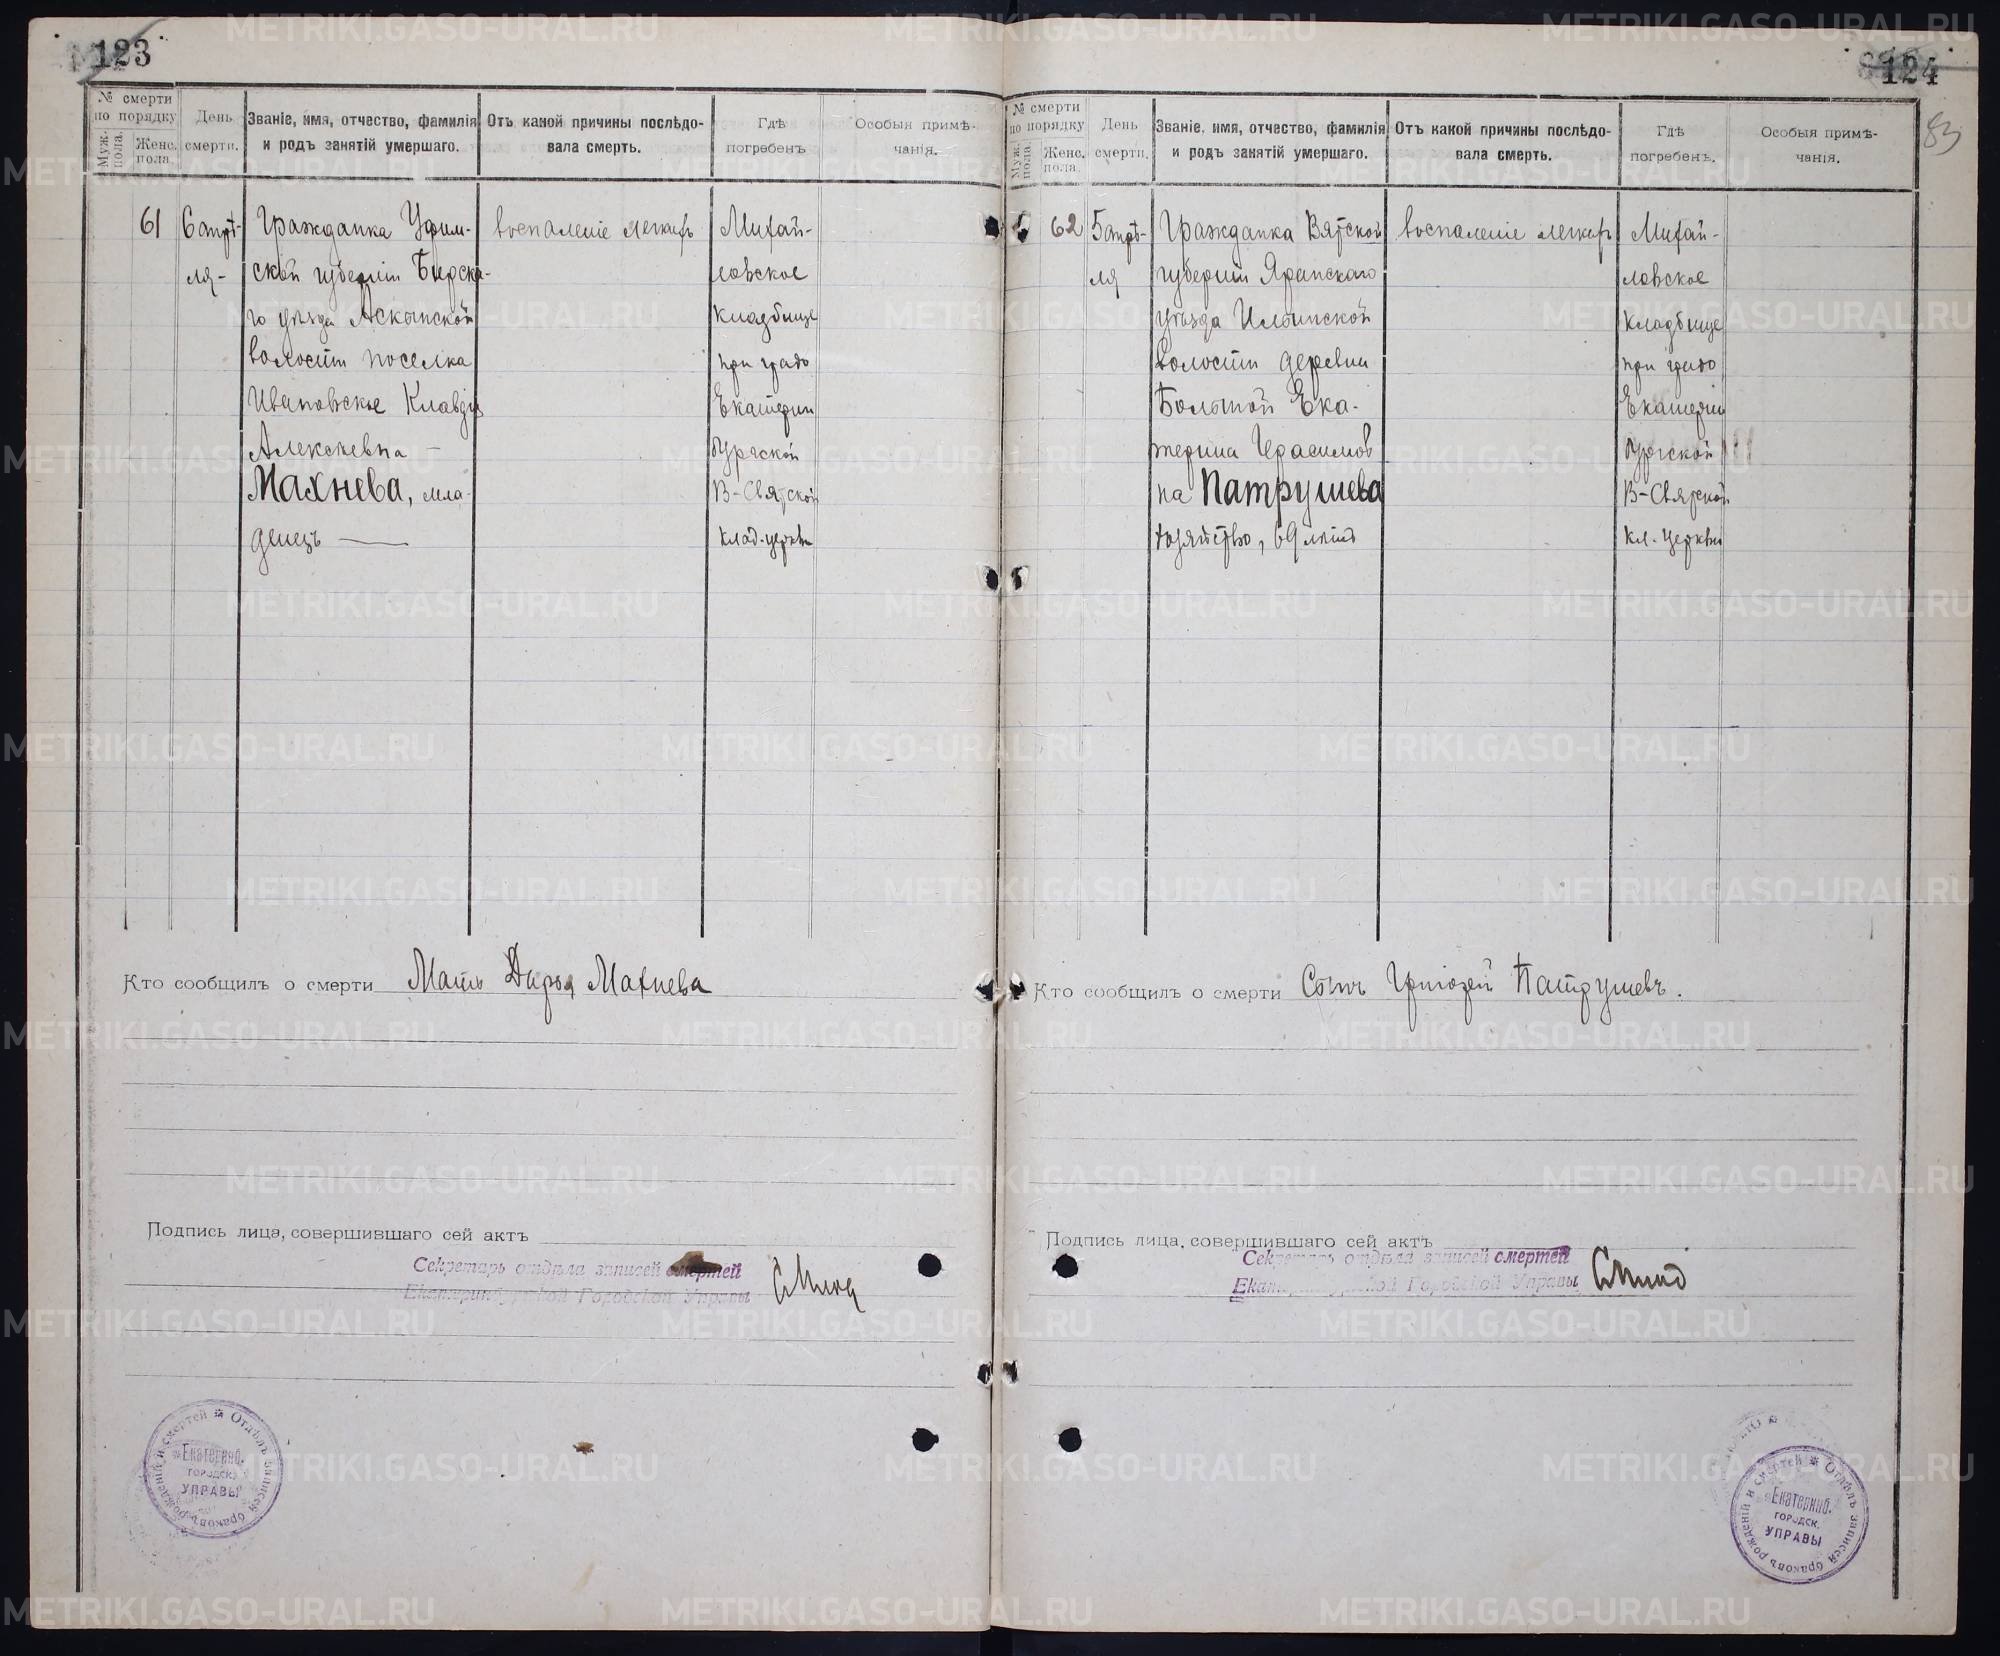 123
№ смерти по порядку
Муж. пола.
Женс. пола.
День смерти.
Званіе, имя, отчество, фамилія и родъ занятій умершаго.
Отъ какой причины послѣдовала смерть.
Гдѣ погребенъ
Особыя примѣчанія.
61
6 апрѣ-
ля-
Гражданка Уфим-
ской губерніи Бирска-
го уѣзда Аскынской
волости поселка
Ивановское Клавдія
Алексѣевна —
Махнева, мла-
денецъ —
воспаленіе легкихъ
Михай-
ловское
кладбище
при градо
Екатерин
бургской
В-Святской
клад. церкви
Кто сообщилъ о смерти Мать Дарья Махнева
Подпись лица, совершившаго сей актъ
Секретарь отдѣла записей смертей
Екатеринбургской Городской Управы
Отдѣлъ записей браковъ рожденій и смертей
Екатеринб.
городск.
УПРАВЫ
124
83
№ смерти по порядку
Муж. пола.
Женс. пола.
День смерти.
Званіе, имя, отчество, фамилія и родъ занятій умершаго.
Отъ какой причины послѣдовала смерть.
Гдѣ погребенъ.
Особыя примѣчанія.
62
5 апрѣ-
ля
Гражданка Вятской
губерніи Яранскаго
уѣзда Ильинской
волости деревни
Большой Ека-
терина Герасимов
на Патрушева
хозяйство, 69 лѣтъ
воспаленіе легкихъ
Михай-
ловское
кладбище
при градо
Екатерин
бургской
В-Святской
кл. церкви
Кто сообщилъ о смерти Сынъ Григорій Патрушевъ.
Подпись лица, совершившаго сей актъ
Секретарь отдѣла записей смертей
Екатеринбургской Городской Управы
Отдѣлъ записей браковъ рожденій и смертей
Екатеринб.
городск.
УПРАВЫ
METRIKI.GASO-URAL.RU